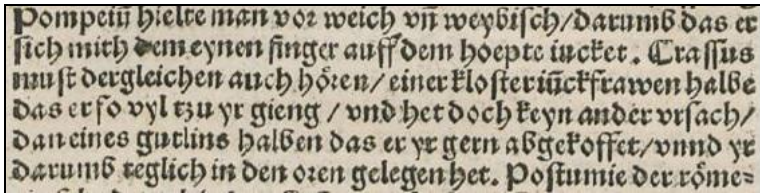 Pompeiū hielte man vor weich vñ weybisch/darumb das er
sich mith dem eynen finger auff dem hoepte iucket. Crassus
must dergleichen auch hören/einer klosteriūckfrawen halbe
das er so vyl tzu yr gieng/vnd het doch keyn ander vrsach/
dan eines gutlins halben das er yr gern abgekoffet/vnnd yr
darumb teglich in den oren gelegen het. Postumie der röme=